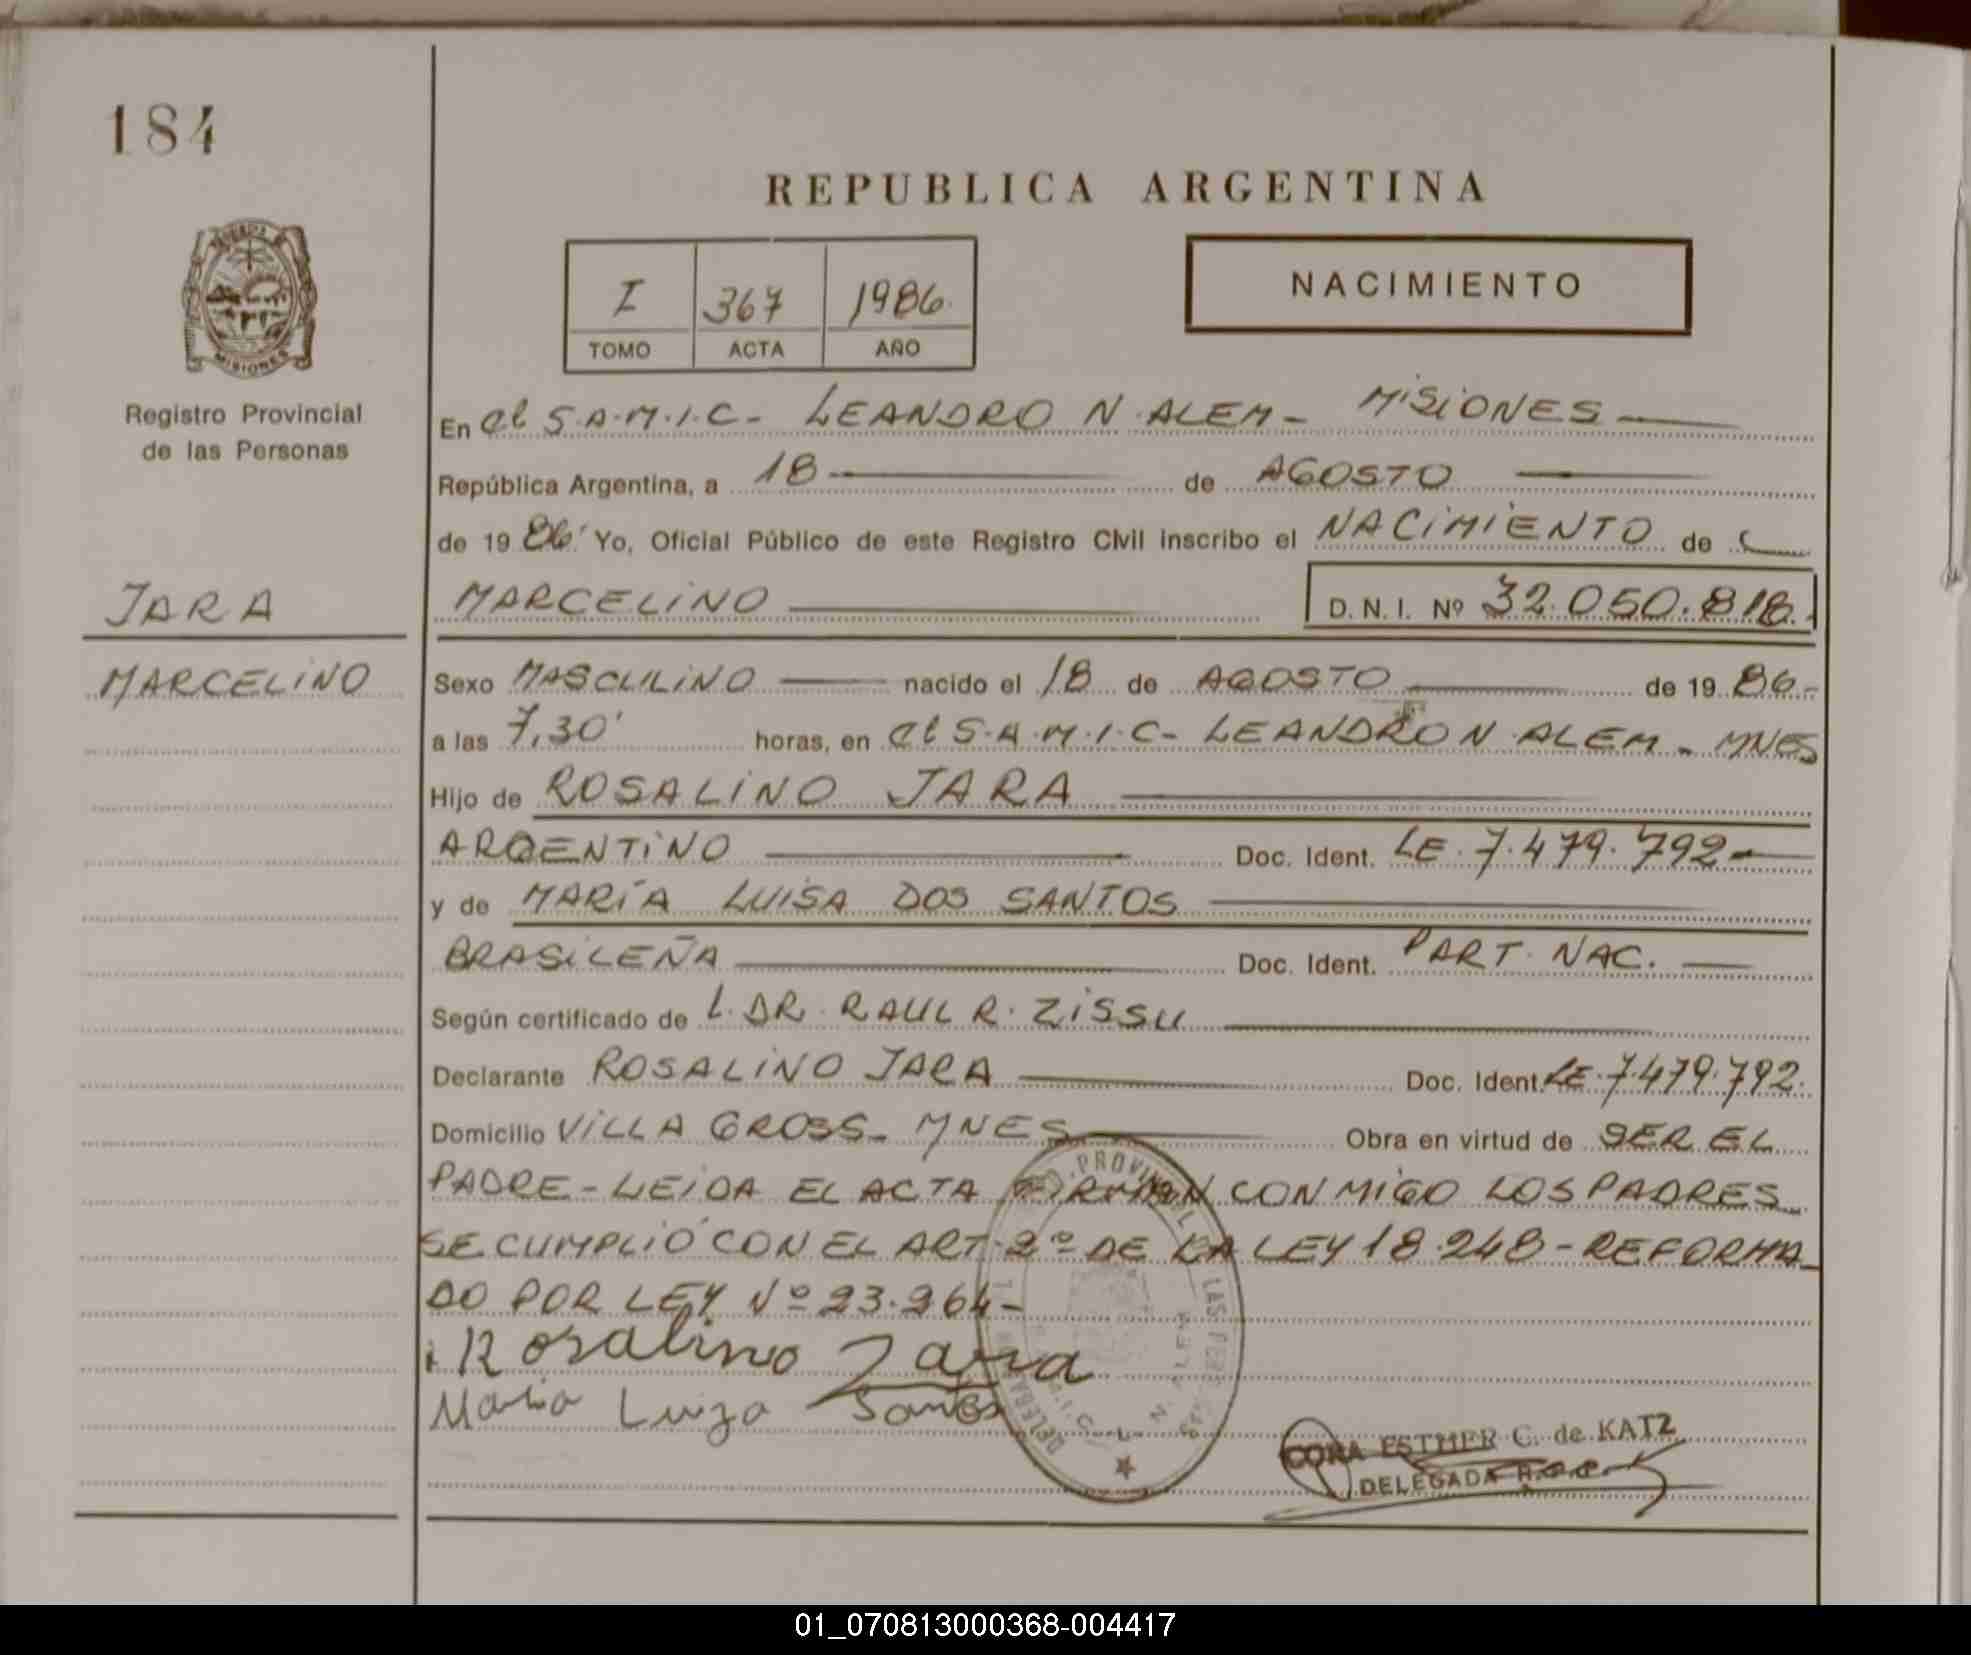 184
REPUBLICA ARGENTINA
I 367 1986.
TOMO ACTA AÑO
NACIMIENTO
MISIONES
Registro Provincial
de las Personas
En el S.A.M.I.C- LEANDRO N. ALEM- MISIONES
República Argentina, a 18 de AGOSTO
de 1986. Yo, Oficial Público de este Registro Civil inscribo el NACIMIENTO de
JARA
MARCELINO D.N.I. Nº 32.050.818.-
MARCELINO
Sexo MASCULINO nacido el 18 de AGOSTO de 1986-
a las 7,30' horas, en el S.A.M.I.C- LEANDRO N. ALEM- MNES
Hijo de ROSALINO JARA
ARGENTINO Doc. Ident. LE. 7.479.792-
y de MARÍA LUISA DOS SANTOS
BRASILEÑA Doc. Ident. PART. NAC.
Según certificado de L. DR. RAUL R. ZISSU
Declarante ROSALINO JARA Doc. Ident. LE. 7.479.792.
Domicilio VILLA GROSS- MNES Obra en virtud de SER EL
PADRE- LEIDA EL ACTA FIRMAN CONMIGO LOS PADRES
SE CUMPLIÓ CON EL ART. 2º DE LA LEY 18.248- REFORMA
DO POR LEY Nº 23.264-
Rosalino Jara
Maria Luiza Santos
CORA ESTHER C. de KATZ
DELEGADA
01_070813000368-004417